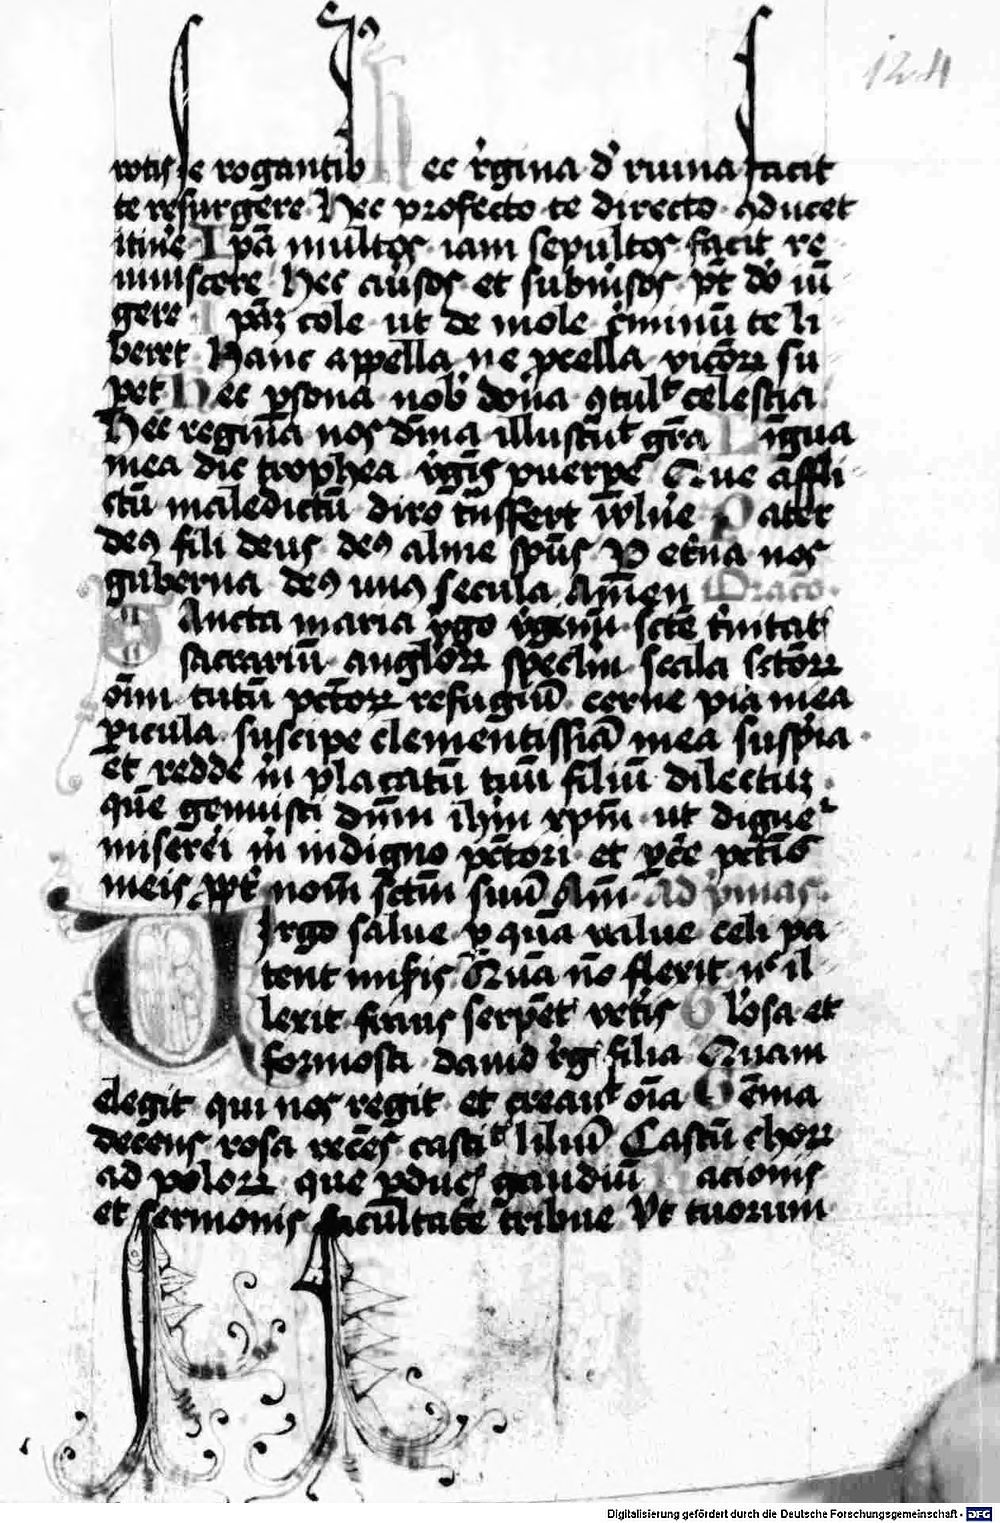 124
votis se rogantib Hec rͥgina d̕ ruina facit
te resurgere Hec profecto te directo ꝯducet
itine Ip̄a multos iam sepultos facit re
gere Ip̄aꝫ cole ut de mole c̕minū te li
beret Hanc appella ne ꝓcella vicioꝝ su
ꝑet Hec ꝑsona nob̕ dona ꝯtul̕ celestia
Hec regina nos dīna illust̕ut gr̄a Lingua
mea dic trophea v̕gīs puerpe Que affli
ctū maledictū diro t̄nsfert Pater
deꝰ fili deus deꝰ alme sp̄us P et̄na nos
guberna deꝰ unꝰ secula Amen Oracō
Sancta maria v̕go v̕ginū sc̄te t̕nitat̕
sacrariū angloꝝ speclm̄ scala sc̄toꝝ
oīm tutū pc̄toꝝ refugiū cerne pia mea
ꝑicula suscipe clementissiā mea suspͥia
et redde m̕ placatū tuū filiū dilectuꝫ
quē genuisti dn̄m ih̄m xp̄m ut digne
miserei m̕ indigno pc̄tori et ꝑc̄e pc̄tis
meis ꝓpt̕ nom̄ sc̄tm̄ suū Am̄ Ad pͥmas
Virgo salue ꝑ quā value celi pa
tent mis̕is Quā nō flexit n̕ il
lexit fraus serpēt̕ vet̕is Glosa et
formosa dauid rͥg̕ filia Quam
elegit qui nos regit et creauͭ oīa Gēma
decens rosa recēs castiͭ liliū Castū choꝝ
ad poloꝝ que ꝑduc̕ gaudiū Racionis
et sermonis facultatē tribue Ut tuorum
Digitalisierung gefördert durch die Deutsche Forschungsgemeinschaft - DFG